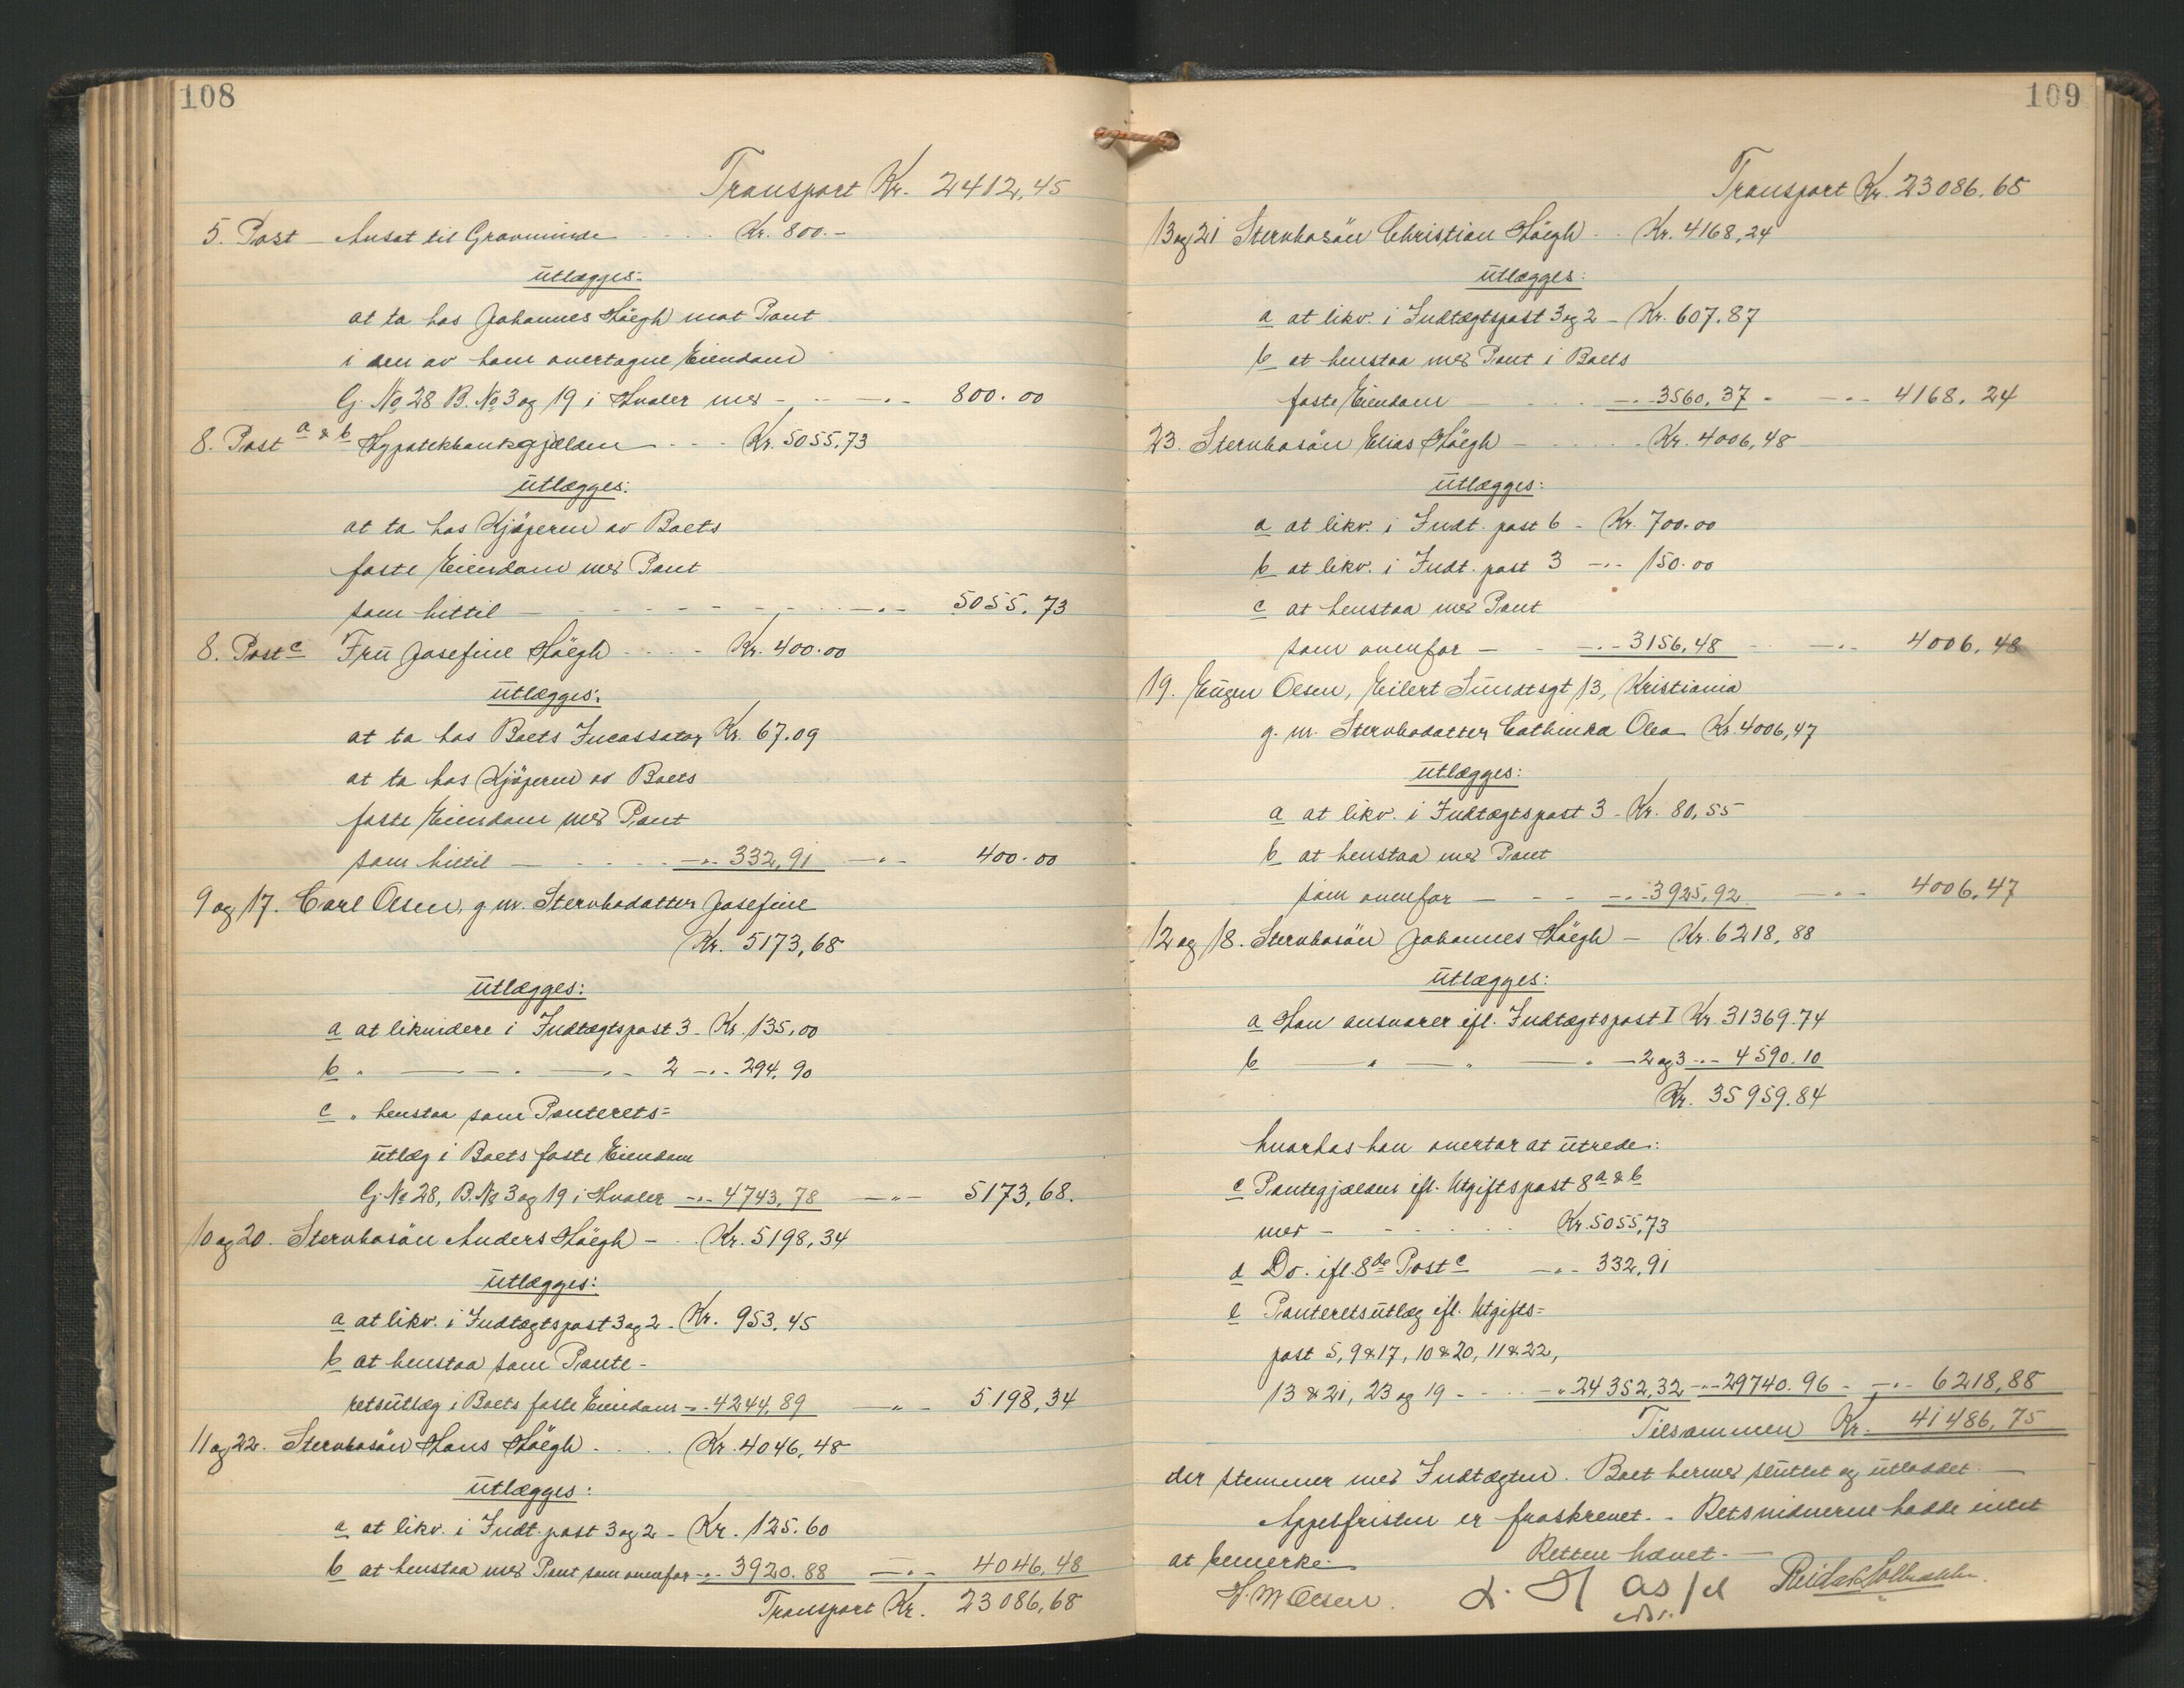 108
Transport Kr. 2412,45
5. Post Ansat til Gravminde Kr. 800.-
utlægges:
at ta hos Johannes Höegh mot Pant
i den av ham overtagne Eiendom
G. No. 28 B. No. 3 og 19 i Hvaler med - " - 800.00
8. Post a & b Hypotekbankgjælden Kr. 5055,73
utlægges:
at ta hos Kjöperen av Boets
faste Eiendom med Pant
som hittil - " - 5055.73
8. Post c Frü Josefine Höegh Kr. 400.00
utlægges:
at ta hos Boets Incassator Kr. 67.09
at ta hos Kjöperen av Boets
faste Eiendom med Pant
som hittil - " - 332,91 - " - 400.00
9 og 17. Carl Olsen, g. m. Stervbodatter Josefine
Kr. 5173,68
utlægges:
a at likvidere i Indtægtspost 3 - Kr. 135,00
b " - " - " - 2 - " - 294.90
c " henstaa som Panterets=
ütlæg i Boets faste Eiendom
G. No 28, B. No 3 og 19 i Hvaler - " - 4743,78 - " - 5173,68.
10 og 20. Stervbosön Anders Höegh - Kr. 5198,34
utlægges:
a at likv. i Indtægtspost 3 og 2 - Kr. 953,45
b at henstaa som Pante-
retsütlæg i Boets faste Eiendom - " - 4244,89 - " - 5198,34
11 og 22. Stervbosön Hans Höegh Kr. 4046,48
utlægges:
a at likv. i Indt. post 3 og 2 - Kr. 125.60
b at henstaa med Pant som ovenfor - " - 3920.88 - " - 4046,48
Transport Kr. 23086,68
109
Transport Kr. 23086.68
13 og 21 Stervbosön Christian Höegh Kr. 4168,24
utlægges:
a at likv. i Indtægtspost 3 og 2 - Kr. 607.87
b at henstaa med Pant i Boets
faste Eiendom - " - 3560,37 - " - 4168,24
23. Stervbosön Elias Höegh - Kr. 4006,48
utlægges:
a at likv. i Indt. post 6 - Kr. 700.00
b at likv. i Indt. post 3 - " - 150.00
c at henstaa med Pant
som ovenfor - " - 3156,48 - " - 4006,48
19. Eügen Olsen, Eilert Sündtsgt 13, Kristiania
g. m. Stervbodatter Cathinka Olea Kr. 4006,47
utlægges:
a at likv. i Indtægtspost 3 - Kr. 80,55
b at henstaa med Pant
som ovenfor - " - 3925,92 - " - 4006,47
12 og 18. Stervbosön Johannes Höegh - Kr. 6218,88
utlægges:
a Han ansvarer ifl. Indtægtspost I Kr. 31369.74
b - " - " - " - 2 og 3 - " - 4590.10
Kr. 35959.84
hvorhos han overtar at ütrede:
c Pantegjælden ifl. Utgiftspost 8 a & b
med - Kr. 5055,73
d Do. ifl. 8de Post c - " - 332,91
e Panteretsütlæg ifl. Utgifts=
post 5, 9 & 17, 10 & 20, 11 & 22,
13 & 21, 23 og 19 - " - 24352,32 - " - 29740.96 - " - 6218,88
Tilsammen Kr. 41486,75
der stemmer med Indtægten. Boet hermed slüttet og ütloddet.
Appelfristen er fraskrevet. - Retsvidnerne hadde intet
at bemerke. Retten hævet.
H. M Olsen.